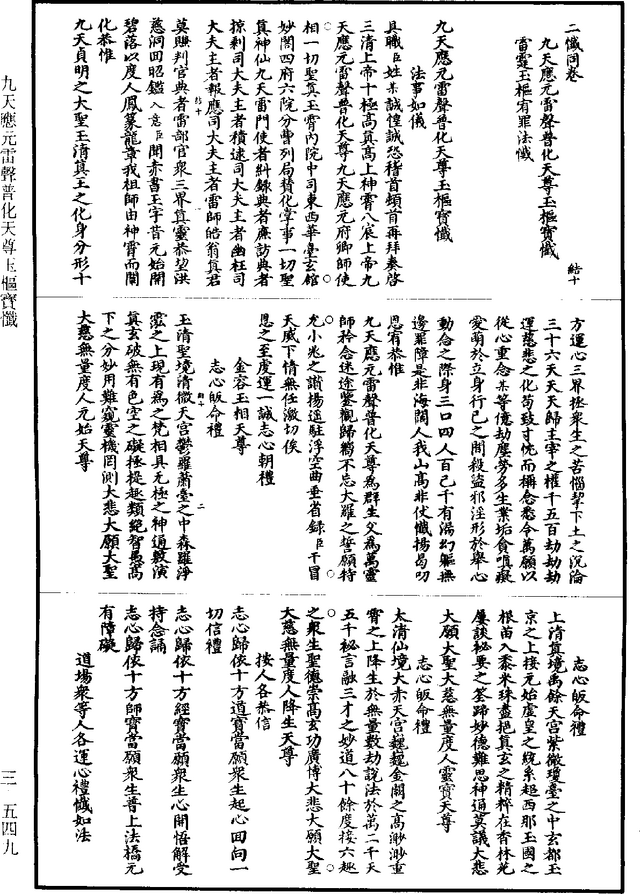 二懺同卷
九天應元雷聲普化天尊玉樞寶懺
雷霆玉樞宥罪法懺
結十
九天應元雷聲普化天尊玉樞寶懺
法事如儀
具職臣姓某誠惶誠恐稽首頓首再拜奏啓
三清上帝十極高真高上神霄八宸上帝九
天應元雷聲普化天尊九天應元府卿師使
相一切聖真玉霄內院中司東西華臺玄館
妙閣四府六院分曹列局贊化掌事一切聖
真神仙九天雷門使者糾錄典者廉訪典者
掠剩司大夫主者積逮司大夫主者幽枉司
大夫主者報應司大夫主者雷師皓翁真君
莫賺判官典者雷部官衆三界真靈恭望洪
慈洞回昭鑑入意臣聞赤書玉字昔元始開
碧落以度人鳳篆龍章我祖師由神霄而闡
化恭惟
九天貞明之大聖玉清真王之化身分形十
方運心三界拯衆生之苦惱挈下土之沉淪
三十六天天天歸主宰之權千五百劫劫劫
運慈悲之化苟致寸忱而稱念悉令萬願以
從心重念某等億劫塵勞多生業垢貪嗔癡
愛萌於立身行己之間殺盜邪淫形於舉心
動念之際身三口四人百己千有漏幻軀無
邊罪障是非海闊人我山高非仗懺揚曷叨
恩宥恭惟
九天應元雷聲普化天尊為群生父為萬靈
師矜念迷途鑒觀歸嚮不忘大羅之誓願特
允小兆之讚揚遥駐浮空曲垂省録臣干冒
天威下情無任激切俟
恩之至虔運一誠志心朝禮
金容玉相天尊
志心皈命禮
玉清聖境清微天宮鬱羅蕭臺之中森羅淨
泓之上現有為之梵相具無極之神通敷演
真玄破無有色空之礙拯提趣類絕智馬高
下之分妙用難窺靈機罔測大悲大願大聖
大慈無量度人元始天尊
志心皈命禮
上清真境禹餘天宮紫微瓊臺之中玄都玉
京之上接元始虛皇之統系超西那玉國之
根苗入黍米珠盡把真玄之精粹在香林苑
屢談秘要之筌蹄妙德難思神通莫議大悲
大願大聖大慈無量度人靈寶天尊
志心皈命禮
太清仙境大赤天宮巍巍金闕之高渺渺重
霄之上降生於無量數劫說法於萬二千天
五千秘言融三才之妙道八十餘度接六趣
之衆生聖德崇高玄功廣博大悲大願大聖
大慈無量度人降生天尊
按人各恭信
志心歸依十方道寶當願衆生起心回向一
切信禮
志心歸依十方經寶當願衆生心開悟解受
持念誦
志心歸依十方師寶當願衆生普上法橋元
有障礙
道場衆等人各運心禮懺如法
九天應元雷聲普化天尊玉樞寶懺
三·五四九